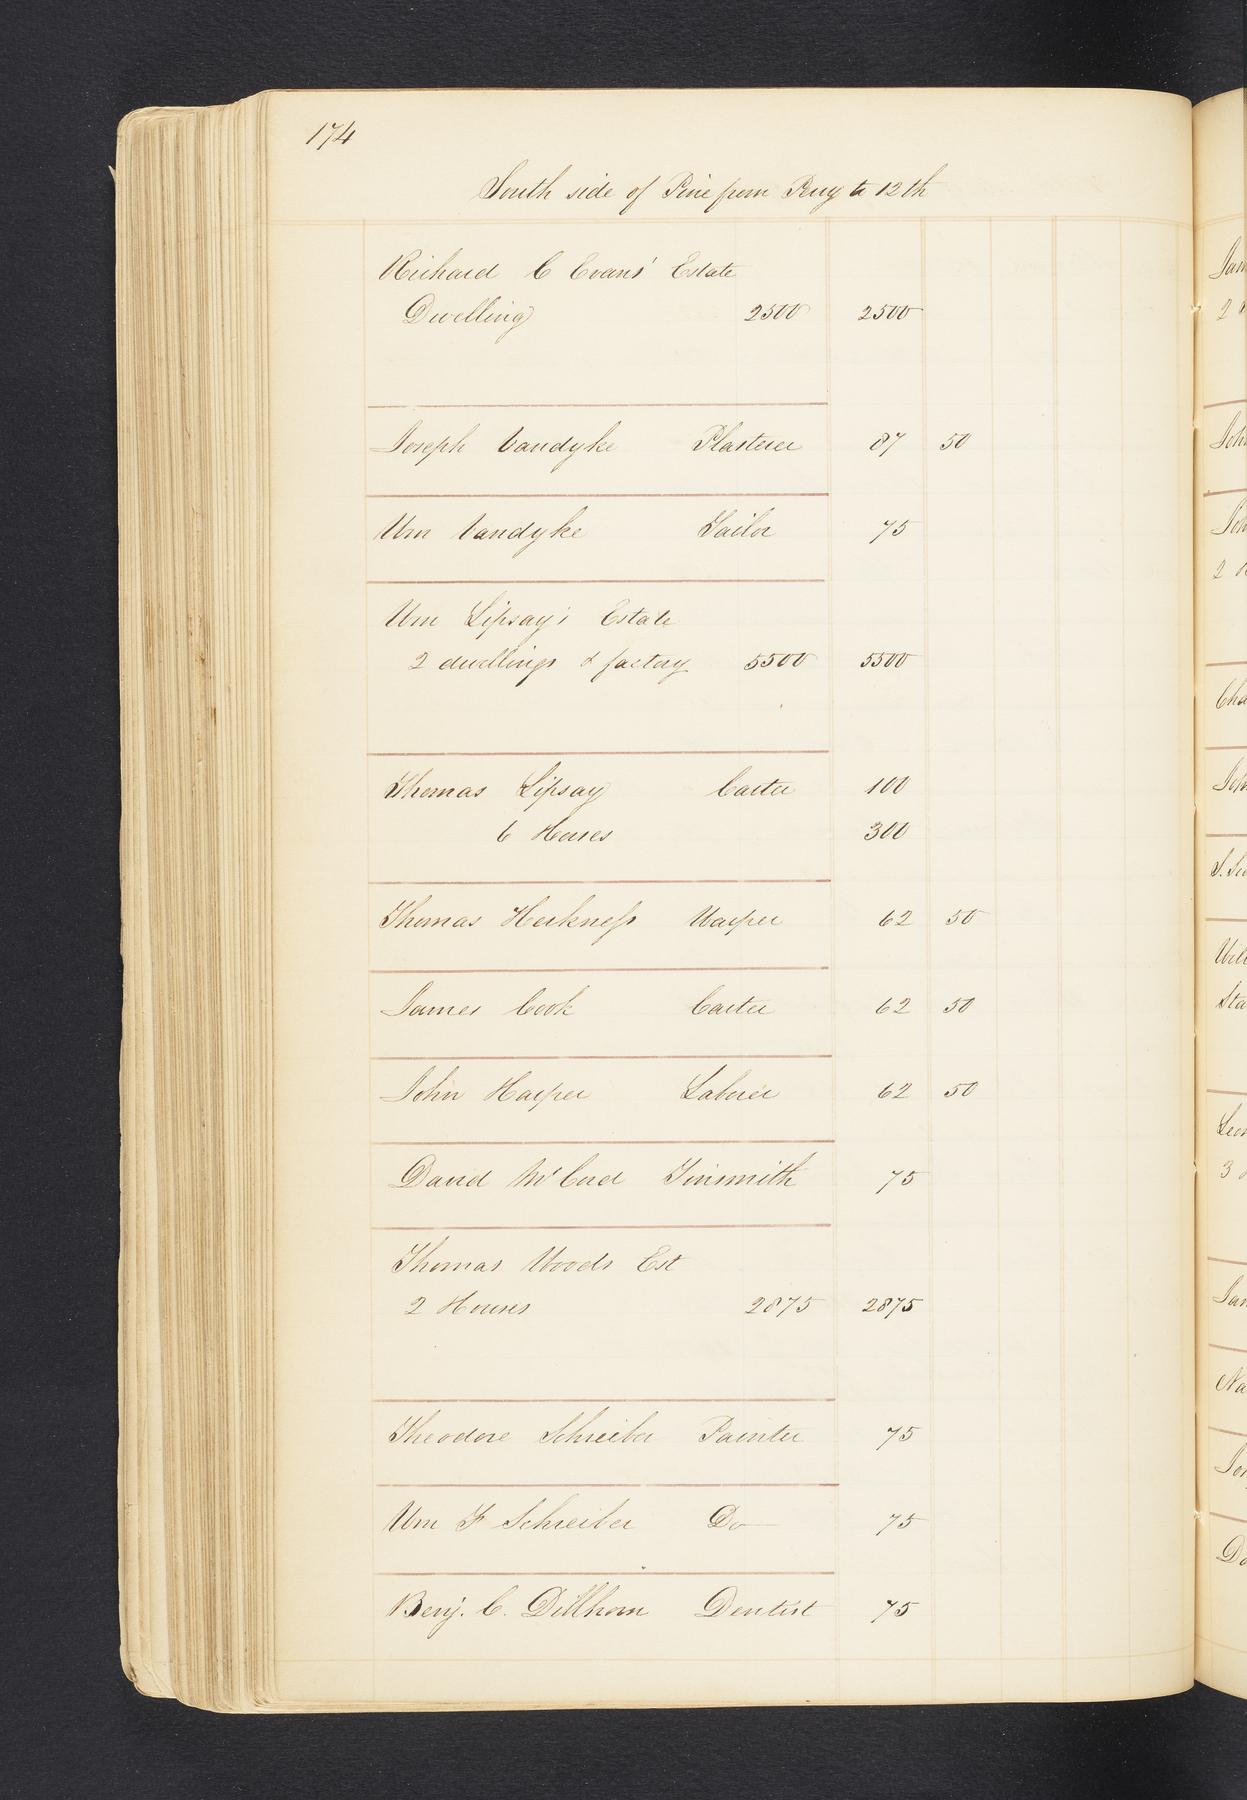 174
South side of Pine from Quay to 12th
Richard C Evans' Estate
Dwelling 2500 2500
Joseph Vandyke Plasterer 87 50
Wm Vandyke Tailor 75
Wm Lipsay's Estate
2 dwellings & factory 5500 5500
Thomas Lipsay Carter 100
6 Horses 300
Thomas Herkness Warper 62 50
James Cook Carter 62 50
John Harper Laborer 62 50
David McCord Tinsmith 75
Thomas Woods Est
2 Houses 2875 2875
Theodore Schreiber Painter 75
Wm F Schreiber Do 75
Benj. C. Dillhorn Dentist 75